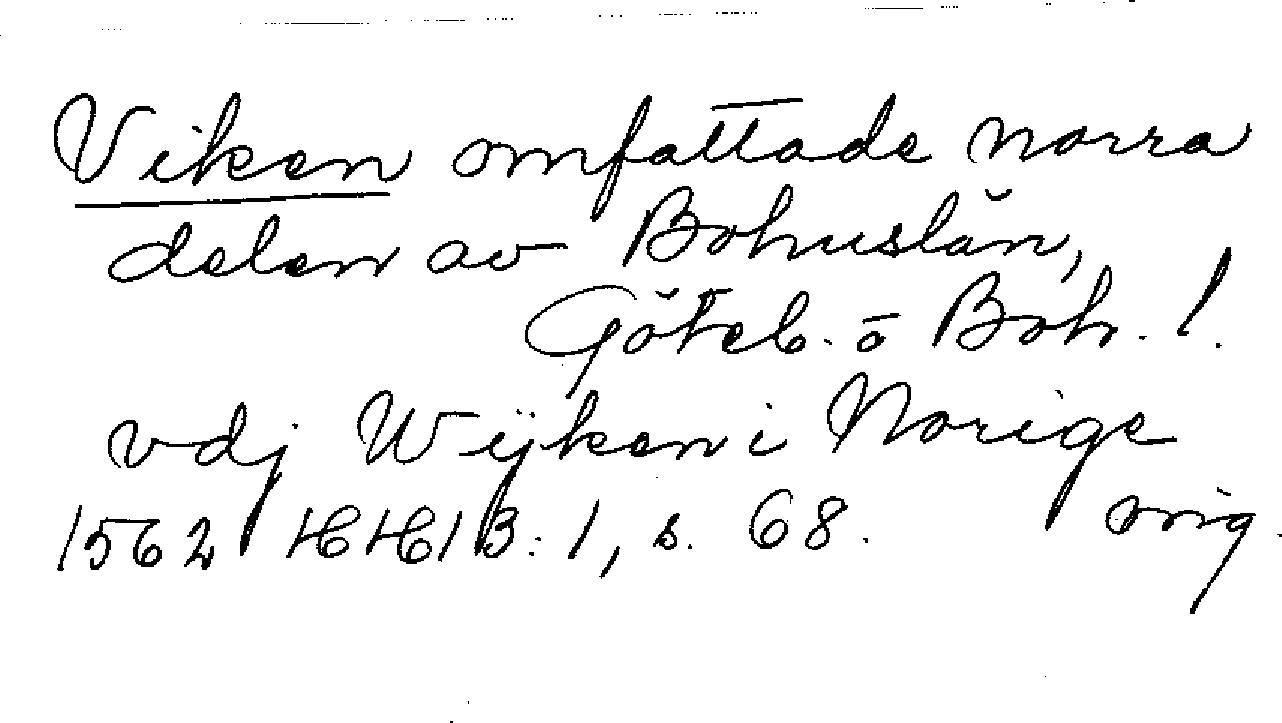 Viken omfattade norra
delen av Bohuslän,
Göteb. o Boh. l.
vdj Wijken i Norige
1562 HH 13:1, s. 68. orig.